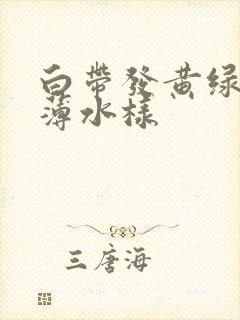 白帶發黄绿
薄水様
三唐海